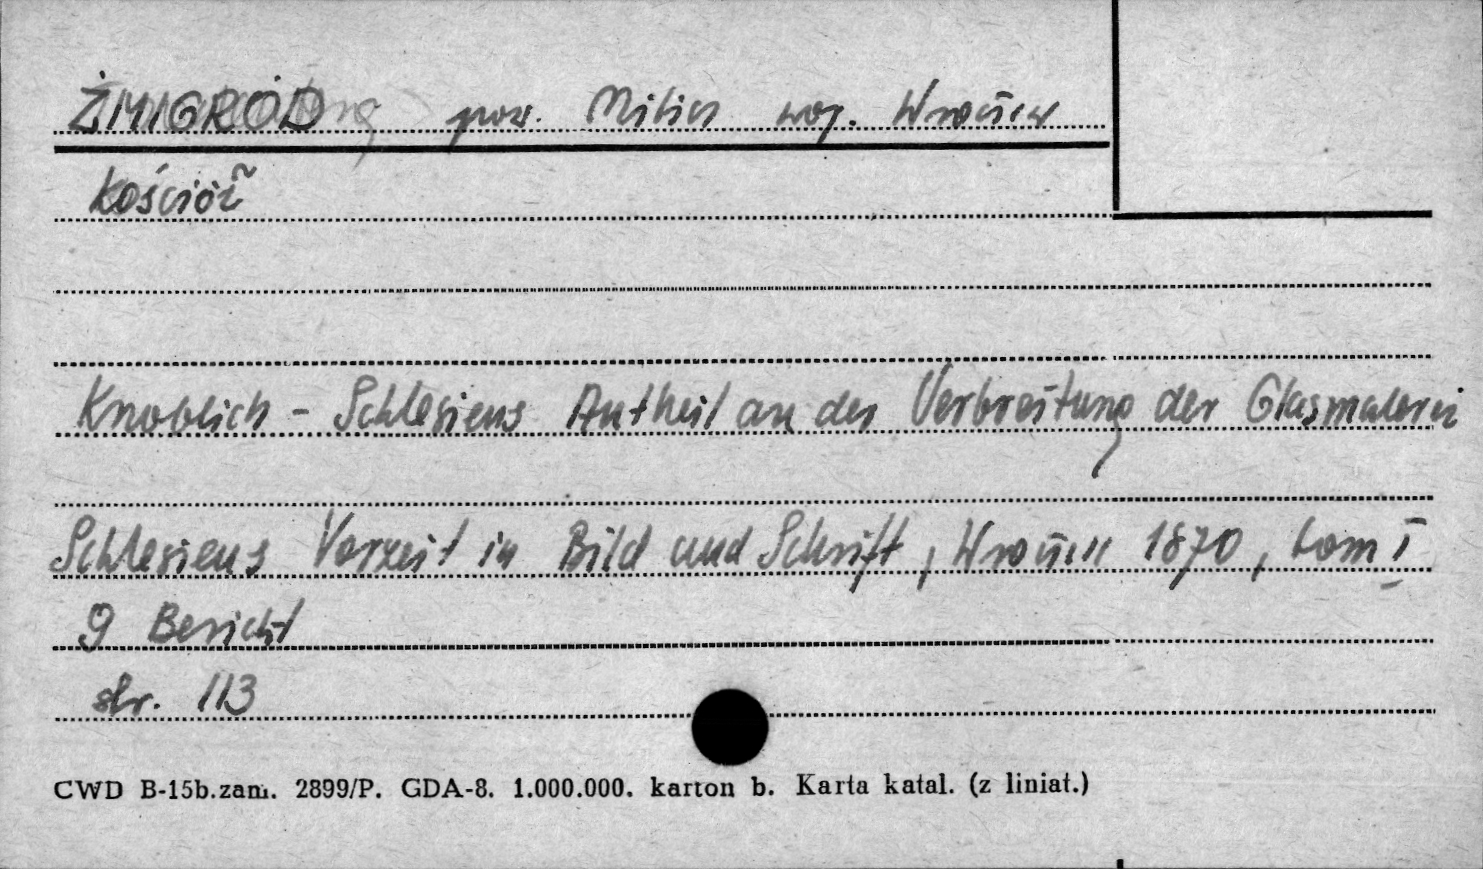 ŻMIGRÓD pow. Milicz woj. Wrocław
Kościół
Knoblich - Schlesiens Antheil an der Verbreitung der Glasmalerei
Schlesiens Vorzeit in Bild und Schrift, Wrocław 1870, tom I
9 Bericht
str. 113
CWD B-15b.zam. 2899/P. GDA-8. 1.000.000. karton b. Karta katal. (z liniat.)